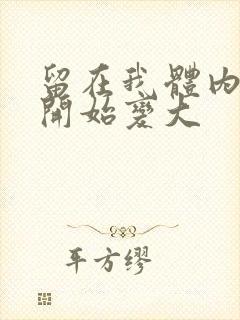 留在我體內
開始變大
平方缪